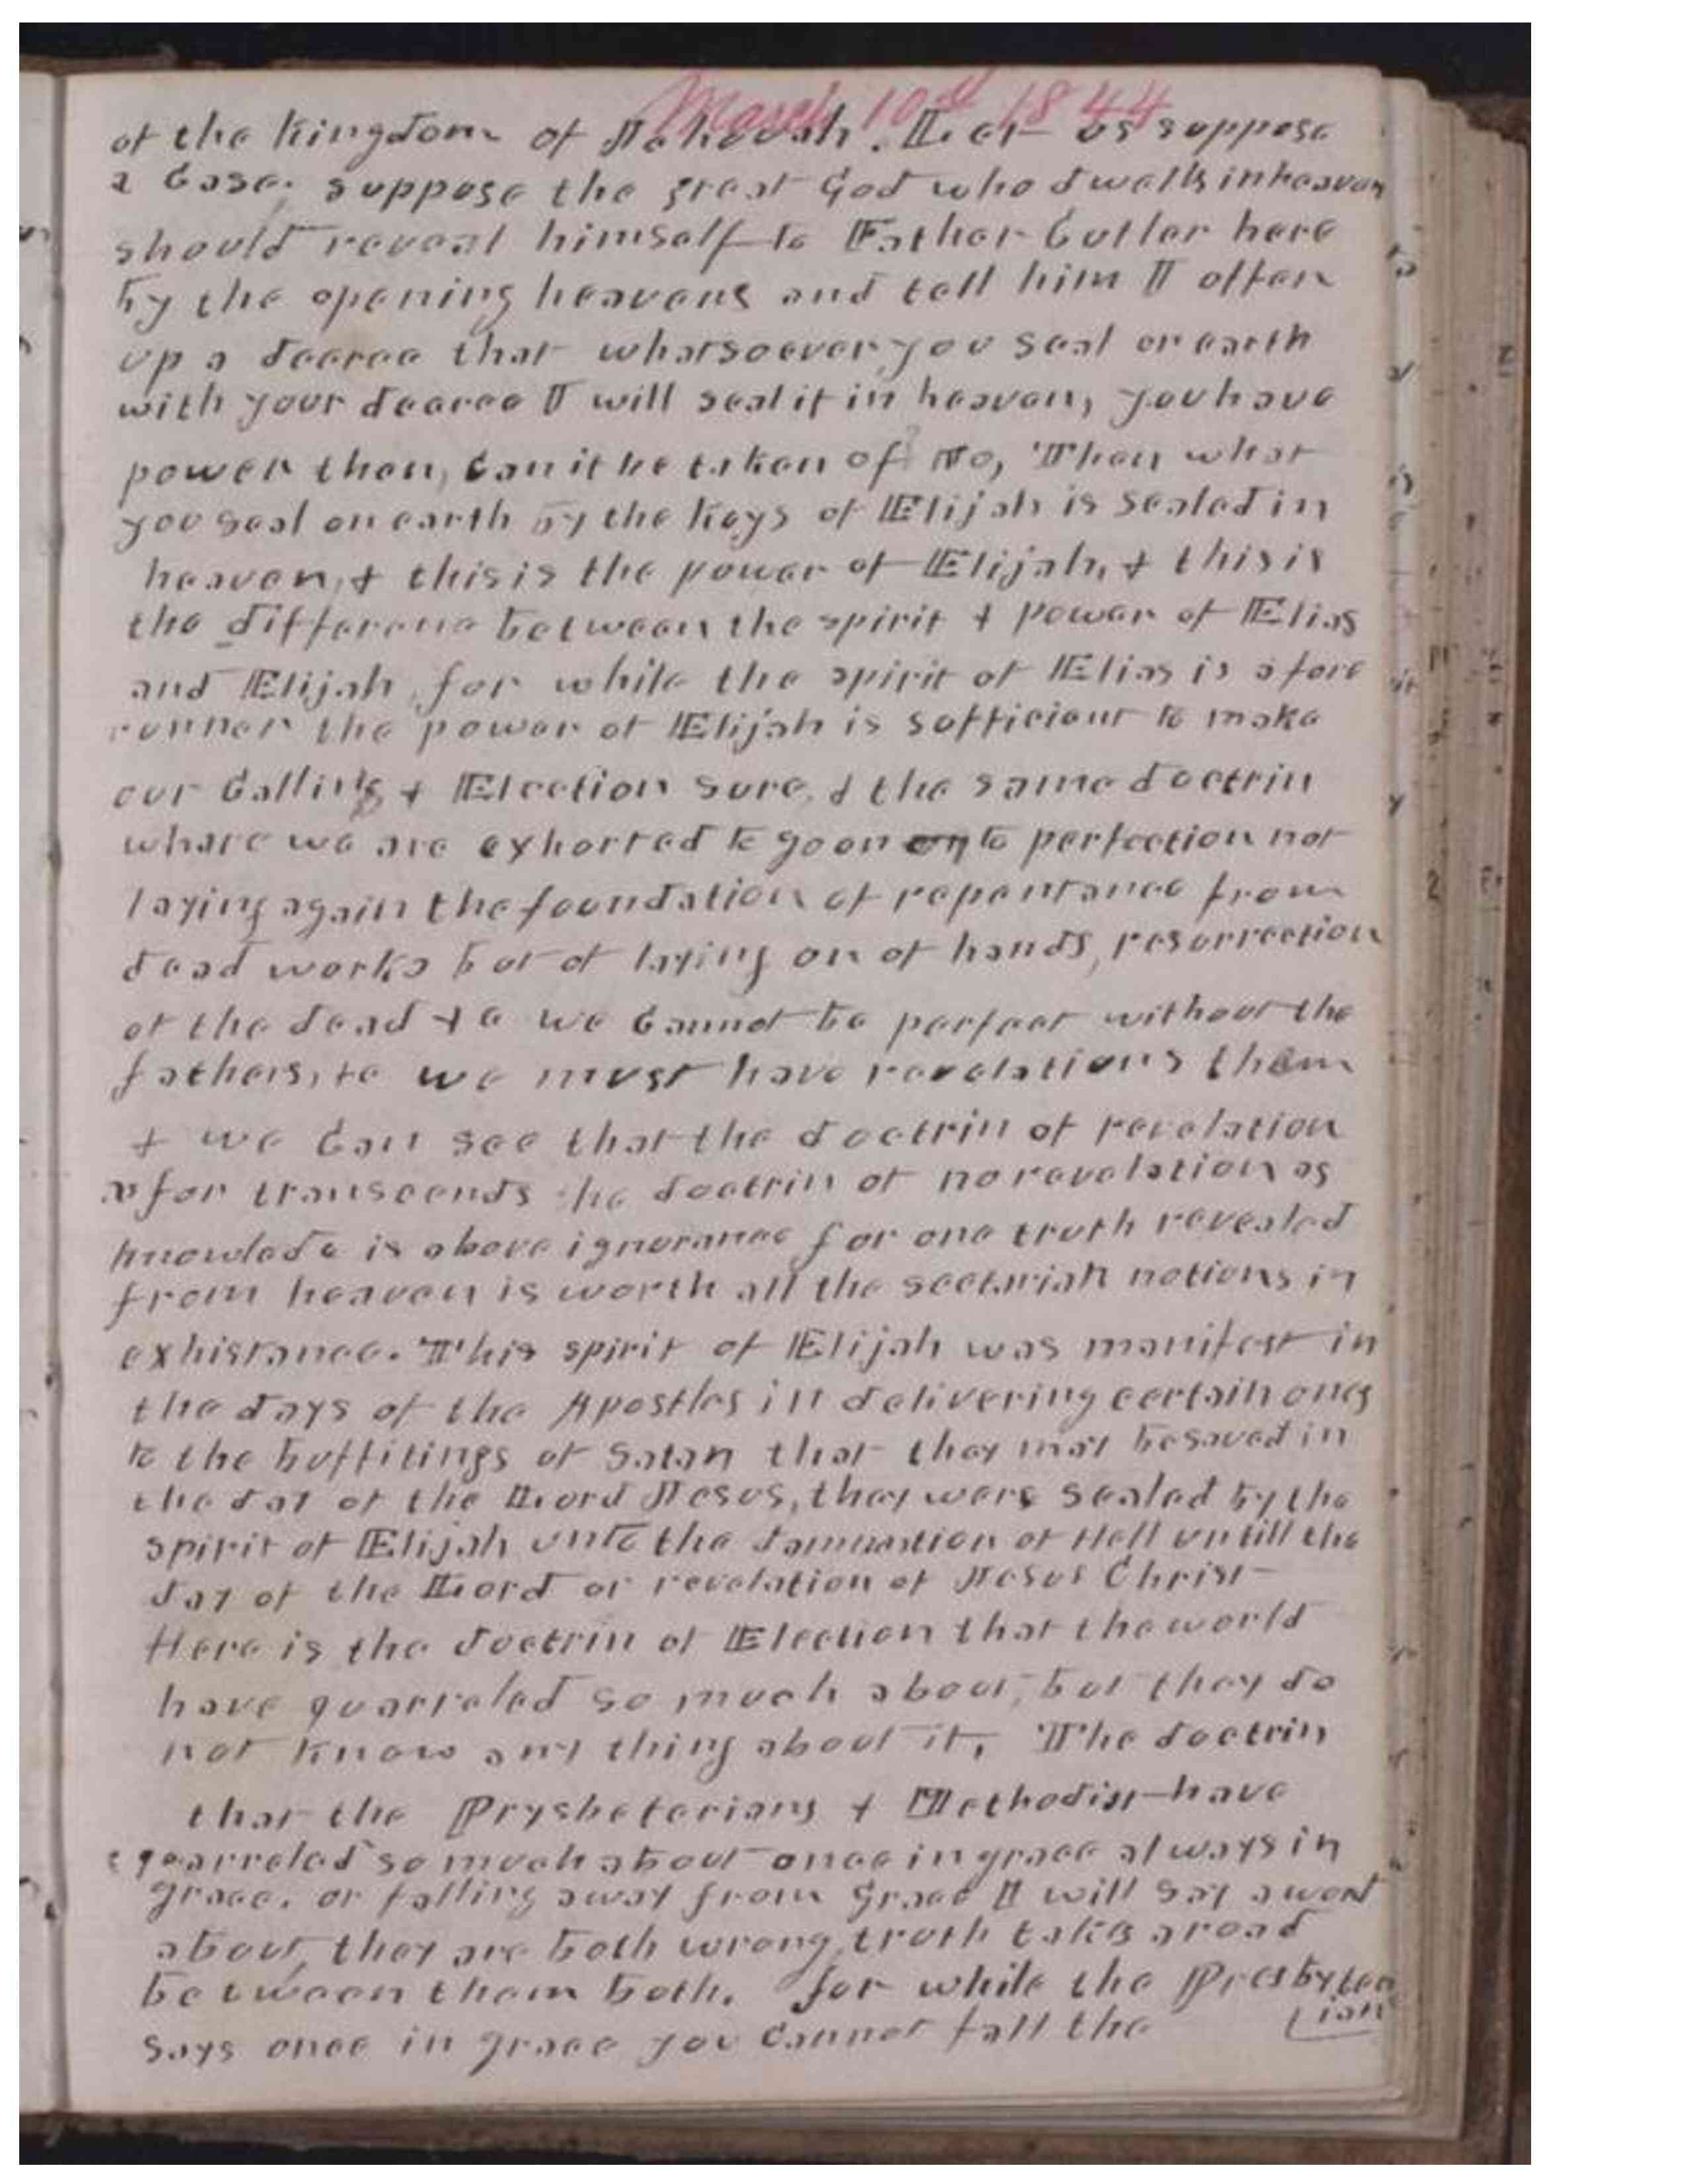 March 10th 1844
of the kingdom of Jehovah. Let us suppose
a Case. suppose the great God who dwells in heaven
should reveal himself to Father Cutler here
by the opening heavens and tell him I offer
up a decree that whatsoever you seal on earth
with your decree I will seal it in heaven, you have
power then, can it be taken of? No, Then what
you seal on earth by the keys of Elijah is sealed in
heaven, & this is the power of Elijah, & this is
the difference between the spirit & power of Elias
and Elijah, for while the spirit of Elias is a fore
runner the power of Elijah is sufficient to make
our Calling & Election sure, & the same doctrin
whare we are exhorted to go on to perfection not
laying again the foundation of repentance from
dead works but of laying on of hands, resurrection
of the dead &c we cannot be perfect without the
fathers, &c we must have revelations them
& we Can see that the doctrin of revelation
as far transcends the doctrin of no revelation as
knowlede is above ignorance for one truth revealed
from heaven is worth all the sectarian notions in
exhistance. This spirit of Elijah was manifest in
the days of the Apostles in delivering certain ones
to the buffitings of Satan that they may be saved in
the day of the Lord Jesus, they were sealed by the
spirit of Elijah unto the damnation of Hell untill the
day of the Lord or revelation of Jesus Christ
Here is the doctrin of Election that the world
have quarreled so much about, but they do
not know any thing about it, The doctrin
that the Prysbeterians & Methodist have
quarreled so much about once in grace always in
grace. or falling away from grace I will say a word
about, they are both wrong, truth takes a road
between them both. for while the Presbyter
ian
says once in grace you cannot fall the